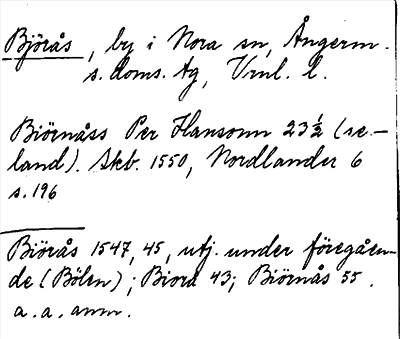 Björås, by i Nora sn, Ångerm.
s. doms. tg, Vrnl. l.
Biörnåss Per Hansonn 23½ (se-
land). Skb. 1550, Nordlander 6
s. 196
Biörås 1547, 45, utj. under föregåen-
de (Bölen); Biorå 43; Biörnås 55.
a. a. anm.